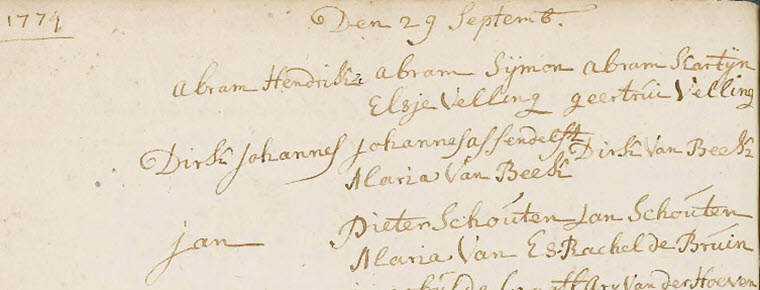 1774 Den 29 Septemb.
Abram Hendrik Abram Sijmon Abram Martijn
Elsje Velling geertrui Velling
Dirk Johannes Johannes assendelft Dirk Van Beek
Maria Van Beek
Jan Pieter Schouten Jan Schouten
Maria Van Es. Rachel de Bruin
Ary Van der Hoeven